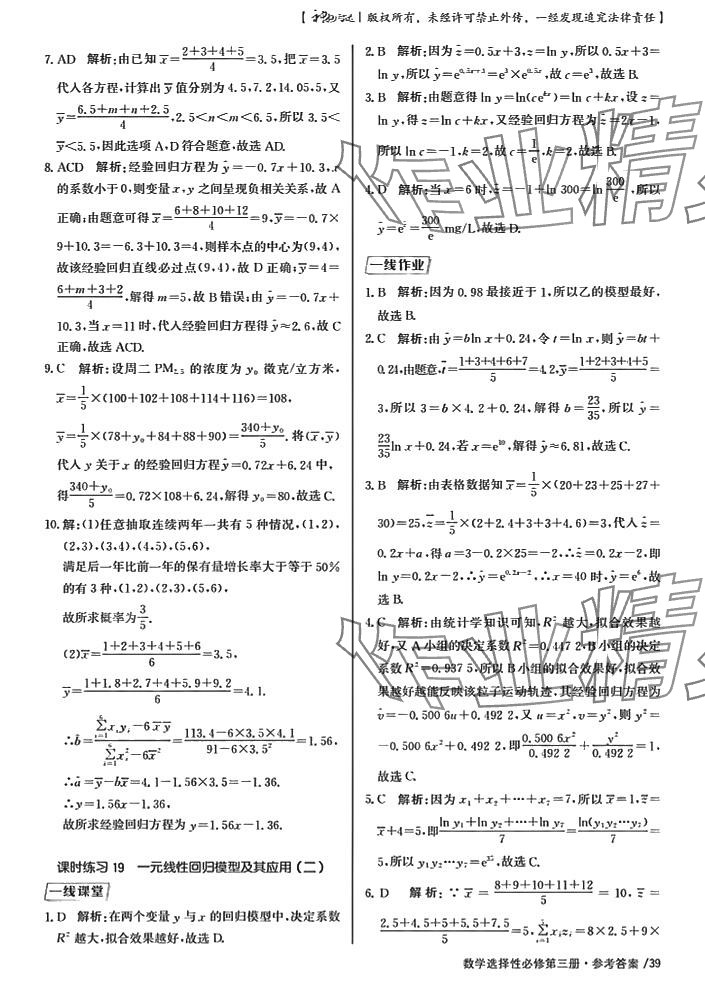 版权所有，未经许可禁止外传，一经发现追究法律责任】
7. AD 解析:由已知x̄=(2+3+4+5)/4=3.5,把x̄=3.5
代入各方程,计算出ȳ值分别为4.5,7.2,14.05,5,又
ȳ=(6.5+m+n+2.5)/4,2.5<n<m<6.5,所以3.5<
ȳ<5.5,因此选项A,D符合题意,故选AD.
8. ACD 解析:经验回归方程为ŷ=-0.7x+10.3,x
的系数小于0,则变量x,y之间呈现负相关关系,故A
正确;由题意可得x̄=(6+8+10+12)/4=9,ȳ=-0.7×
9+10.3=-6.3+10.3=4,则样本点的中心为(9,4),
故该经验回归直线必过点(9,4),故D正确;ȳ=4=
(6+m+3+2)/4,解得m=5,故B错误;由ŷ=-0.7x+
10.3,当x=11时,代入经验回归方程得ŷ≈2.6,故C
正确.故选ACD.
9. C 解析:设周二PM₂.₅的浓度为y₀微克/立方米,
x̄=1/5×(100+102+108+114+116)=108,
ȳ=1/5×(78+y₀+84+88+90)=(340+y₀)/5.将(x̄,ȳ)
代入y关于x的经验回归方程ŷ=0.72x+6.24中,
得(340+y₀)/5=0.72×108+6.24,解得y₀=80,故选C.
10. 解:(1)任意抽取连续两年一共有5种情况,(1,2),
(2,3),(3,4),(4,5),(5,6),
满足后一年比前一年的保有量增长率大于等于50%
的有3种,(1,2),(2,3),(5,6),
故所求概率为3/5.
(2)x̄=(1+2+3+4+5+6)/6=3.5,
ȳ=(1+1.8+2.7+4+5.9+9.2)/6=4.1.
∴b̂=(∑xᵢyᵢ-6x̄ȳ)/(∑xᵢ²-6x̄²)=(113.4-6×3.5×4.1)/(91-6×3.5²)=1.56,
∴â=ȳ-b̂x̄=4.1-1.56×3.5=-1.36.
∴y=1.56x-1.36,
故所求经验回归方程为y=1.56x-1.36.
课时练习19 一元线性回归模型及其应用(二)
一线课堂
1. D 解析:在两个变量y与x的回归模型中,决定系数
R²越大,拟合效果越好.故选D.
2. B 解析:因为ẑ=0.5x+3,z=ln y,所以0.5x+3=
ln y,所以ŷ=e^(0.5x+3)=e³×e^(0.5x),故c=e³,故选B.
3. B 解析:由题意得ln y=ln(ce^(kx))=ln c+kx,设z=
ln y,得z=ln c+kx,又经验回归方程为ẑ=2x-1,
所以ln c=-1,k=2,故c=1/e,k=2,故选B.
4. D 解析:当x=6时,ẑ=-1+ln 300=ln 300/e,所以
ŷ=e^ẑ=300/e mg/L,故选D.
一线作业
1. B 解析:因为0.98最接近于1,所以乙的模型最好,
故选B.
2. C 解析:由ŷ=bln x+0.24,令t=ln x,则ŷ=bt+
0.24,由题意,t̄=(1+3+4+6+7)/5=4.2,ȳ=(1+2+3+4+5)/5=
3,所以3=b×4.2+0.24,解得b=23/35,所以ŷ=
23/35ln x+0.24,若x=e¹⁰,解得ŷ≈6.81,故选C.
3. B 解析:由表格数据知x̄=1/5×(20+23+25+27+
30)=25,z̄=1/5×(2+2.4+3+3+4.6)=3,代入ẑ=
0.2x+a,得a=3-0.2×25=-2,∴ẑ=0.2x-2,即
ln y=0.2x-2,∴ŷ=e^(0.2x-2),∴x=40时,ŷ=e⁶,故
选B.
4. C 解析:由统计学知识可知,R²越大,拟合效果越
好,又A小组的决定系数R²=0.447 2,B小组的决定
系数R²=0.937 5,所以B小组的拟合效果好,拟合效
果越好越能反映该粒子运动轨迹,其经验回归方程为
v̂=-0.500 6u+0.492 2,又u=x²,v=y²,则y²=
-0.500 6x²+0.492 2,即0.500 6x²/0.492 2+y²/0.492 2=1,
故选C.
5. C 解析:因为x₁+x₂+…+x₇=7,所以x̄=1,z̄=
x̄+4=5,即(ln y₁+ln y₂+…+ln y₇)/7=ln(y₁y₂…y₇)/7=
5,所以y₁y₂…y₇=e³⁵,故选C.
6. D 解析:∵x̄=(8+9+10+11+12)/5=10,z̄=
(2.5+4.5+5+5.5+7.5)/5=5,∑xᵢzᵢ=8×2.5+9×
数学选择性必修第三册·参考答案/39
作业精
作业精